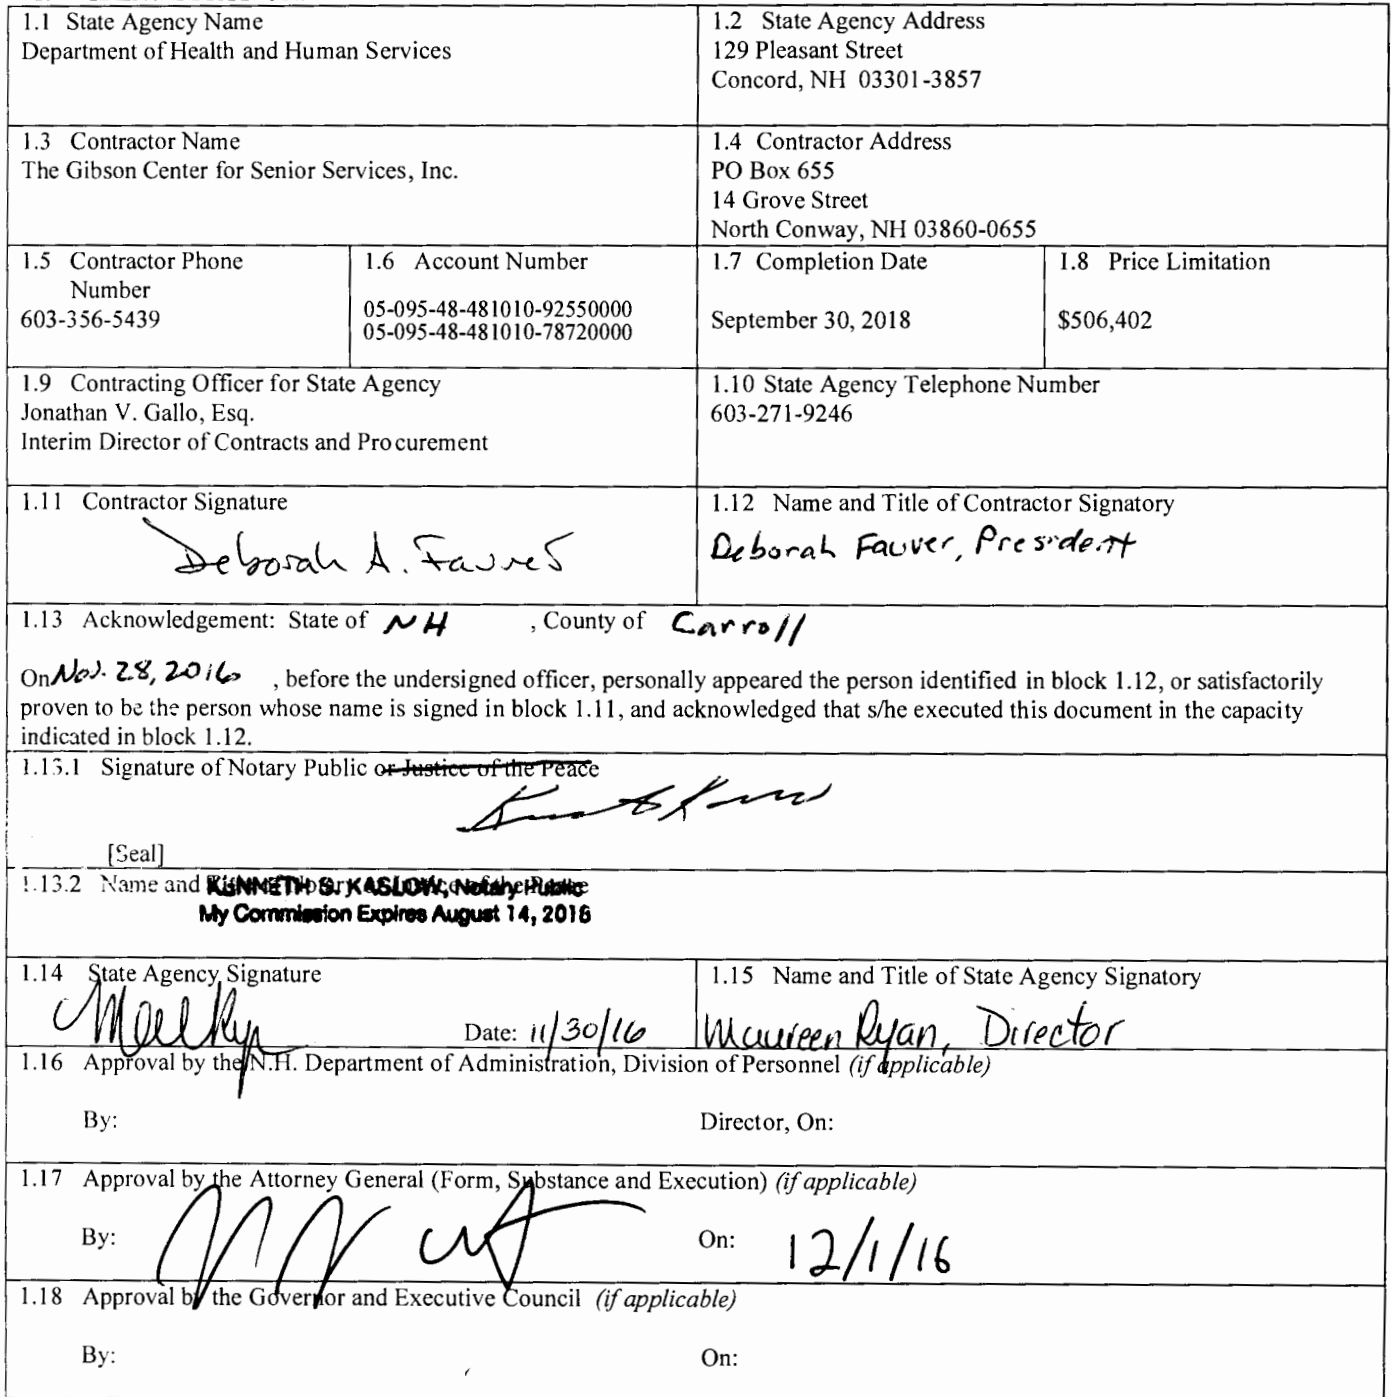 1.1 State Agency Name
Department of Health and Human Services
1.2 State Agency Address
129 Pleasant Street
Concord, NH 03301-3857
1.3 Contractor Name
The Gibson Center for Senior Services, Inc.
1.4 Contractor Address
PO Box 655
14 Grove Street
North Conway, NH 03860-0655
1.5 Contractor Phone
Number
603-356-5439
1.6 Account Number
05-095-48-481010-92550000
05-095-48-481010-78720000
1.7 Completion Date
September 30, 2018
1.8 Price Limitation
$506,402
1.9 Contracting Officer for State Agency
Jonathan V. Gallo, Esq.
Interim Director of Contracts and Procurement
1.10 State Agency Telephone Number
603-271-9246
1.11 Contractor Signature
Deborah A. Fauver
1.12 Name and Title of Contractor Signatory
Deborah Fauver, President
1.13 Acknowledgement: State of NH , County of Carroll
On Nov. 28, 2016 , before the undersigned officer, personally appeared the person identified in block 1.12, or satisfactorily
proven to be the person whose name is signed in block 1.11, and acknowledged that s/he executed this document in the capacity
indicated in block 1.12.
1.13.1 Signature of Notary Public or Justice of the Peace
[Seal]
1.13.2 Name and
KENNETH S. KASLOW, Notary Public
My Commission Expires August 14, 2018
1.14 State Agency Signature
Date: 11/30/16
1.15 Name and Title of State Agency Signatory
Maureen Ryan, Director
1.16 Approval by the N.H. Department of Administration, Division of Personnel (if applicable)
By:
Director, On:
1.17 Approval by the Attorney General (Form, Substance and Execution) (if applicable)
By:
On: 12/1/16
1.18 Approval by the Governor and Executive Council (if applicable)
By:
On: